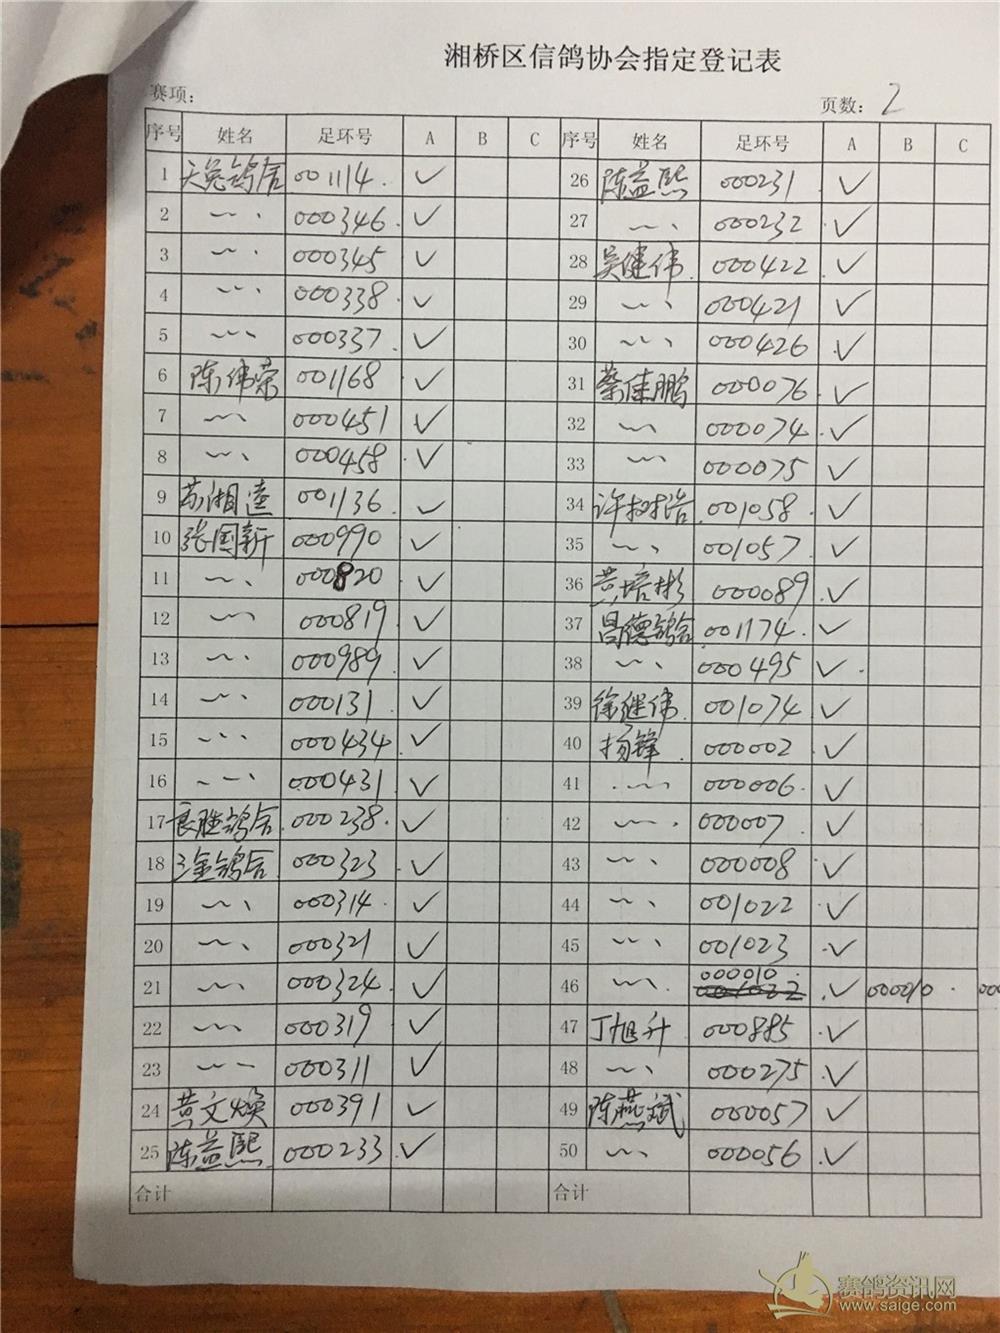 湘桥区信鸽协会指定登记表
赛项： 页数：2
序号 姓名 足环号 A B C 序号 姓名 足环号 A B C
1 天兔鸽舍 001114 ✓ 26 陈益熙 000231 ✓
2 〃 000346 ✓ 27 〃 000232 ✓
3 〃 000345 ✓ 28 吴健伟 000422 ✓
4 〃 000338 ✓ 29 〃 000421 ✓
5 〃 000337 ✓ 30 〃 000426 ✓
6 陈伟荣 001168 ✓ 31 蔡佳鹏 000076 ✓
7 〃 000451 ✓ 32 〃 000074 ✓
8 〃 000458 ✓ 33 〃 000075 ✓
9 苏湘 001136 ✓ 34 许树浩 001058 ✓
10 张国新 000990 ✓ 35 〃 001057 ✓
11 〃 000820 ✓ 36 黄培彬 000089 ✓
12 〃 000819 ✓ 37 昌德鸽舍 001174 ✓
13 〃 000989 ✓ 38 〃 000495 ✓
14 〃 000131 ✓ 39 徐继伟 001074 ✓
15 〃 000434 ✓ 40 杨锋 000002 ✓
16 〃 000431 ✓ 41 〃 000006 ✓
17 良胜鸽舍 000238 ✓ 42 〃 000007 ✓
18 三金鸽舍 000323 ✓ 43 〃 000008 ✓
19 〃 000314 ✓ 44 〃 001022 ✓
20 〃 000321 ✓ 45 〃 001023 ✓
21 〃 000324 ✓ 46 〃 000010 ✓ 000010 000
22 〃 000319 ✓ 47 丁旭升 000885 ✓
23 〃 000311 ✓ 48 〃 000275 ✓
24 黄文焕 000391 ✓ 49 陈燕斌 000057 ✓
25 陈益熙 000233 ✓ 50 〃 000056 ✓
合计 合计
赛鸽资讯网
www.saige.com